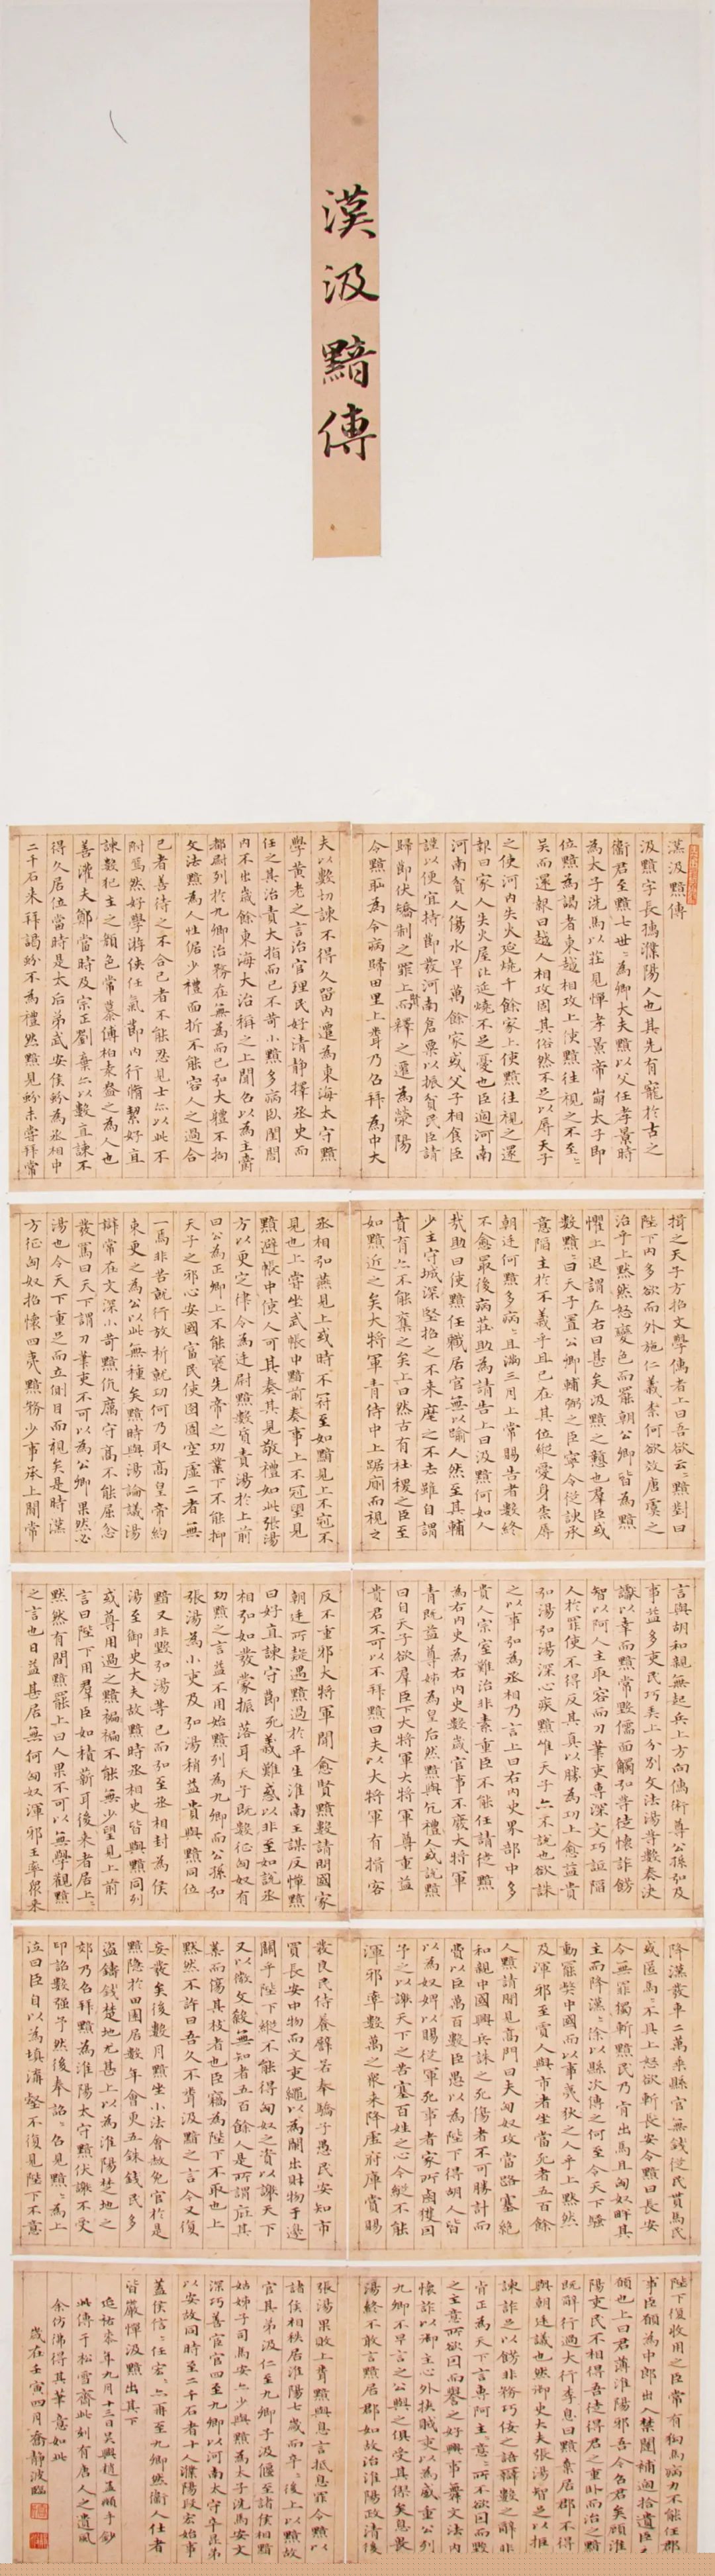 漢汲黯傳
漢汲黯傳
汲黯字長孺濮陽人也其先有寵於古之
衞君至黯七世〻為卿大夫黯以父任孝景時
為太子洗馬以莊見憚孝景帝崩太子即
位黯為謁者東越相攻上使黯往視之不至〻
吳而還報曰越人相攻固其俗然不足以辱天子
之使河內失火延燒千餘家上使黯往視之還
報曰家人失火屋比延燒不足憂也臣過河南
河南貧人傷水旱萬餘家或父子相食臣
謹以便宜持節發河南倉粟以振貧民臣請
歸節伏矯制之罪上賢而釋之遷為滎陽
令黯恥為令病歸田里上聞乃召拜為中大
夫以數切諫不得久留內遷為東海太守黯
學黃老之言治官理民好清靜擇丞史而
任之其治責大指而已不苛小黯多病臥閨閤
內不出歲餘東海大治稱之上聞召以為主爵
都尉列於九卿治務在無為而已弘大體不拘
文法黯為人性倨少禮面折不能容人之過合
己者善待之不合己者不能忍見士亦以此不
附焉然好學游俠任氣節內行脩絜好直
諫數犯主之顏色常慕傅柏袁盎之為人也
善灌夫鄭當時及宗正劉棄亦以數直諫不
得久居位當時是太后弟武安侯蚡為丞相中
二千石來拜謁蚡不為禮然黯見蚡未嘗拜常
揖之天子方招文學儒者上曰吾欲云〻黯對曰
陛下內多欲而外施仁義柰何欲效唐虞之
治乎上默然怒變色而罷朝公卿皆為黯
懼上退謂左右曰甚矣汲黯之戇也羣臣或
數黯〻曰天子置公卿輔弼之臣寧令從諛承
意陷主於不義乎且已在其位縱愛身柰辱
朝廷何黯多病〻且滿三月上常賜告者數終
不愈最後病莊助為請告上曰汲黯何如人
哉助曰使黯任職居官無以踰人然至其輔
少主守城深堅招之不來麾之不去雖自謂
賁育亦不能奪之矣上曰然古有社稷之臣至
如黯近之矣大將軍青侍中上踞廁而視之
丞相弘燕見上或時不冠至如黯見上不冠不
見也上嘗坐武帳中黯前奏事上不冠望見
黯避帳中使人可其奏其見敬禮如此張湯
方以更定律令為廷尉黯數質責湯於上前
曰公為正卿上不能襃先帝之功業下不能抑
天子之邪心安國富民使囹圄空虛二者無
一焉非苦就行放析就功何乃取高皇帝約
束更之為公以此無種矣黯時與湯論議湯
辯常在文深小苛黯伉厲守高不能屈忿
發罵曰天下謂刀筆吏不可以為公卿果然必
湯也今天下重足而立側目而視矣是時漢
方征匈奴招懷四夷黯務少事承上閒常
言與胡和親無起兵上方向儒術尊公孫弘及
事益多吏民巧美上分別文法湯等數奏決
讞以幸而黯常毀儒面觸弘等徒懷詐飾
智以阿人主取容而刀筆吏專深文巧詆陷
人於罪使不得反其真以勝為功上愈益貴
弘湯弘湯深心疾黯惟天子亦不說也欲誅
之以事弘為丞相乃言上曰右內史界部中多
貴人宗室難治非素重臣不能任請徙黯
為右內史為右內史數歲官事不廢大將軍
青既益尊姊為皇后然黯與亢禮人或說黯
曰自天子欲羣臣下大將軍大將軍尊重益
貴君不可以不拜黯曰夫以大將軍有揖客
反不重邪大將軍聞愈賢黯數請問國家
朝廷所疑遇黯過於平生淮南王謀反憚黯
曰好直諫守節死義難惑以非至如說丞
相弘如發蒙振落耳天子既數征匈奴有
功黯之言益不用始黯列為九卿而公孫弘
張湯為小吏及弘湯稍益貴與黯同位
黯又非毀弘湯等已而弘至丞相封為侯
湯至御史大夫故黯時丞相史皆與黯同列
或尊用過之黯褊褊不能無少望見上前
言曰陛下用羣臣如積薪耳後來者居上〻
默然有間黯罷上曰人果不可以無學觀黯
之言也日益甚居無何匈奴渾邪王率眾來
降漢發車二萬乘縣官無錢從民貰馬民
或匿馬〻不具上怒欲斬長安令黯曰長安
令無罪獨斬黯民乃肯出馬且匈奴畔其
主而降漢〻徐以縣次傳之何至令天下騷
動罷獘中國而以事夷狄之人乎上默然
及渾邪至賈人與市者坐當死者五百餘
人黯請間見高門曰夫匈奴攻當路塞絕
和親中國興兵誅之死傷者不可勝計而
費以臣萬百數臣愚以為陛下得胡人皆
以為奴婢以賜從軍死事者家所鹵獲因
予之以謝天下之苦塞百姓之心今縱不能
渾邪率數萬之眾來降虛府庫賞賜
發良民侍養譬若奉驕子愚民安知市
買長安中物而文吏繩以為闌出財物于邊
關乎陛下縱不能得匈奴之資以謝天下
又以微文殺無知者五百餘人是所謂庇其
葉而傷其枝者也臣竊為陛下不取也上
默然不許曰吾久不聞汲黯之言今又復
妄發矣後數月黯坐小法會赦免官於是
黯隱於田園居數年會更五銖錢民多
盜鑄錢楚地尤甚上以為淮陽楚地之
郊乃召拜黯為淮陽太守黯伏謝不受
印詔數強予然後奉詔〻召見黯〻為上
泣曰臣自以為填溝壑不復見陛下不意
陛下復收用之臣常有狗馬病力不能任郡
事臣願為中郎出入禁闥補過拾遺臣之
願也上曰君薄淮陽邪吾今召君矣顧淮
陽吏民不相得吾徒得君之重臥而治之黯
既辭行過大行李息曰黯棄居郡不得
與朝廷議也然御史大夫張湯智足以拒
諫詐足以飾非務巧佞之語辯數之辭非
肯正為天下言專阿主意〻所不欲因而毀
之主意所欲因而譽之好興事舞文法內
懷詐以御主心外挾賊吏以為威重公列
九卿不早言之公與之俱受其僇矣息畏
湯終不敢言黯居郡如故治淮陽政清後
張湯果敗上聞黯與息言抵息罪令黯以
諸侯相秩居淮陽七歲而卒〻後上以黯故
官其弟汲仁至九卿子汲偃至諸侯相黯
姑姊子司馬安亦少與黯為太子洗馬安文
深巧善宦官四至九卿以河南太守卒昆弟
以安故同時至二千石者十人濮陽段宏始事
蓋侯信〻任宏〻亦再至九卿然衞人仕者
皆嚴憚黯出其下
延祐柒年九月十三日吳興趙孟頫手鈔
此傳于松雪齋此刻有唐人之遺風
余仿佛得其筆意如此
歲在壬寅四月喬靜波臨